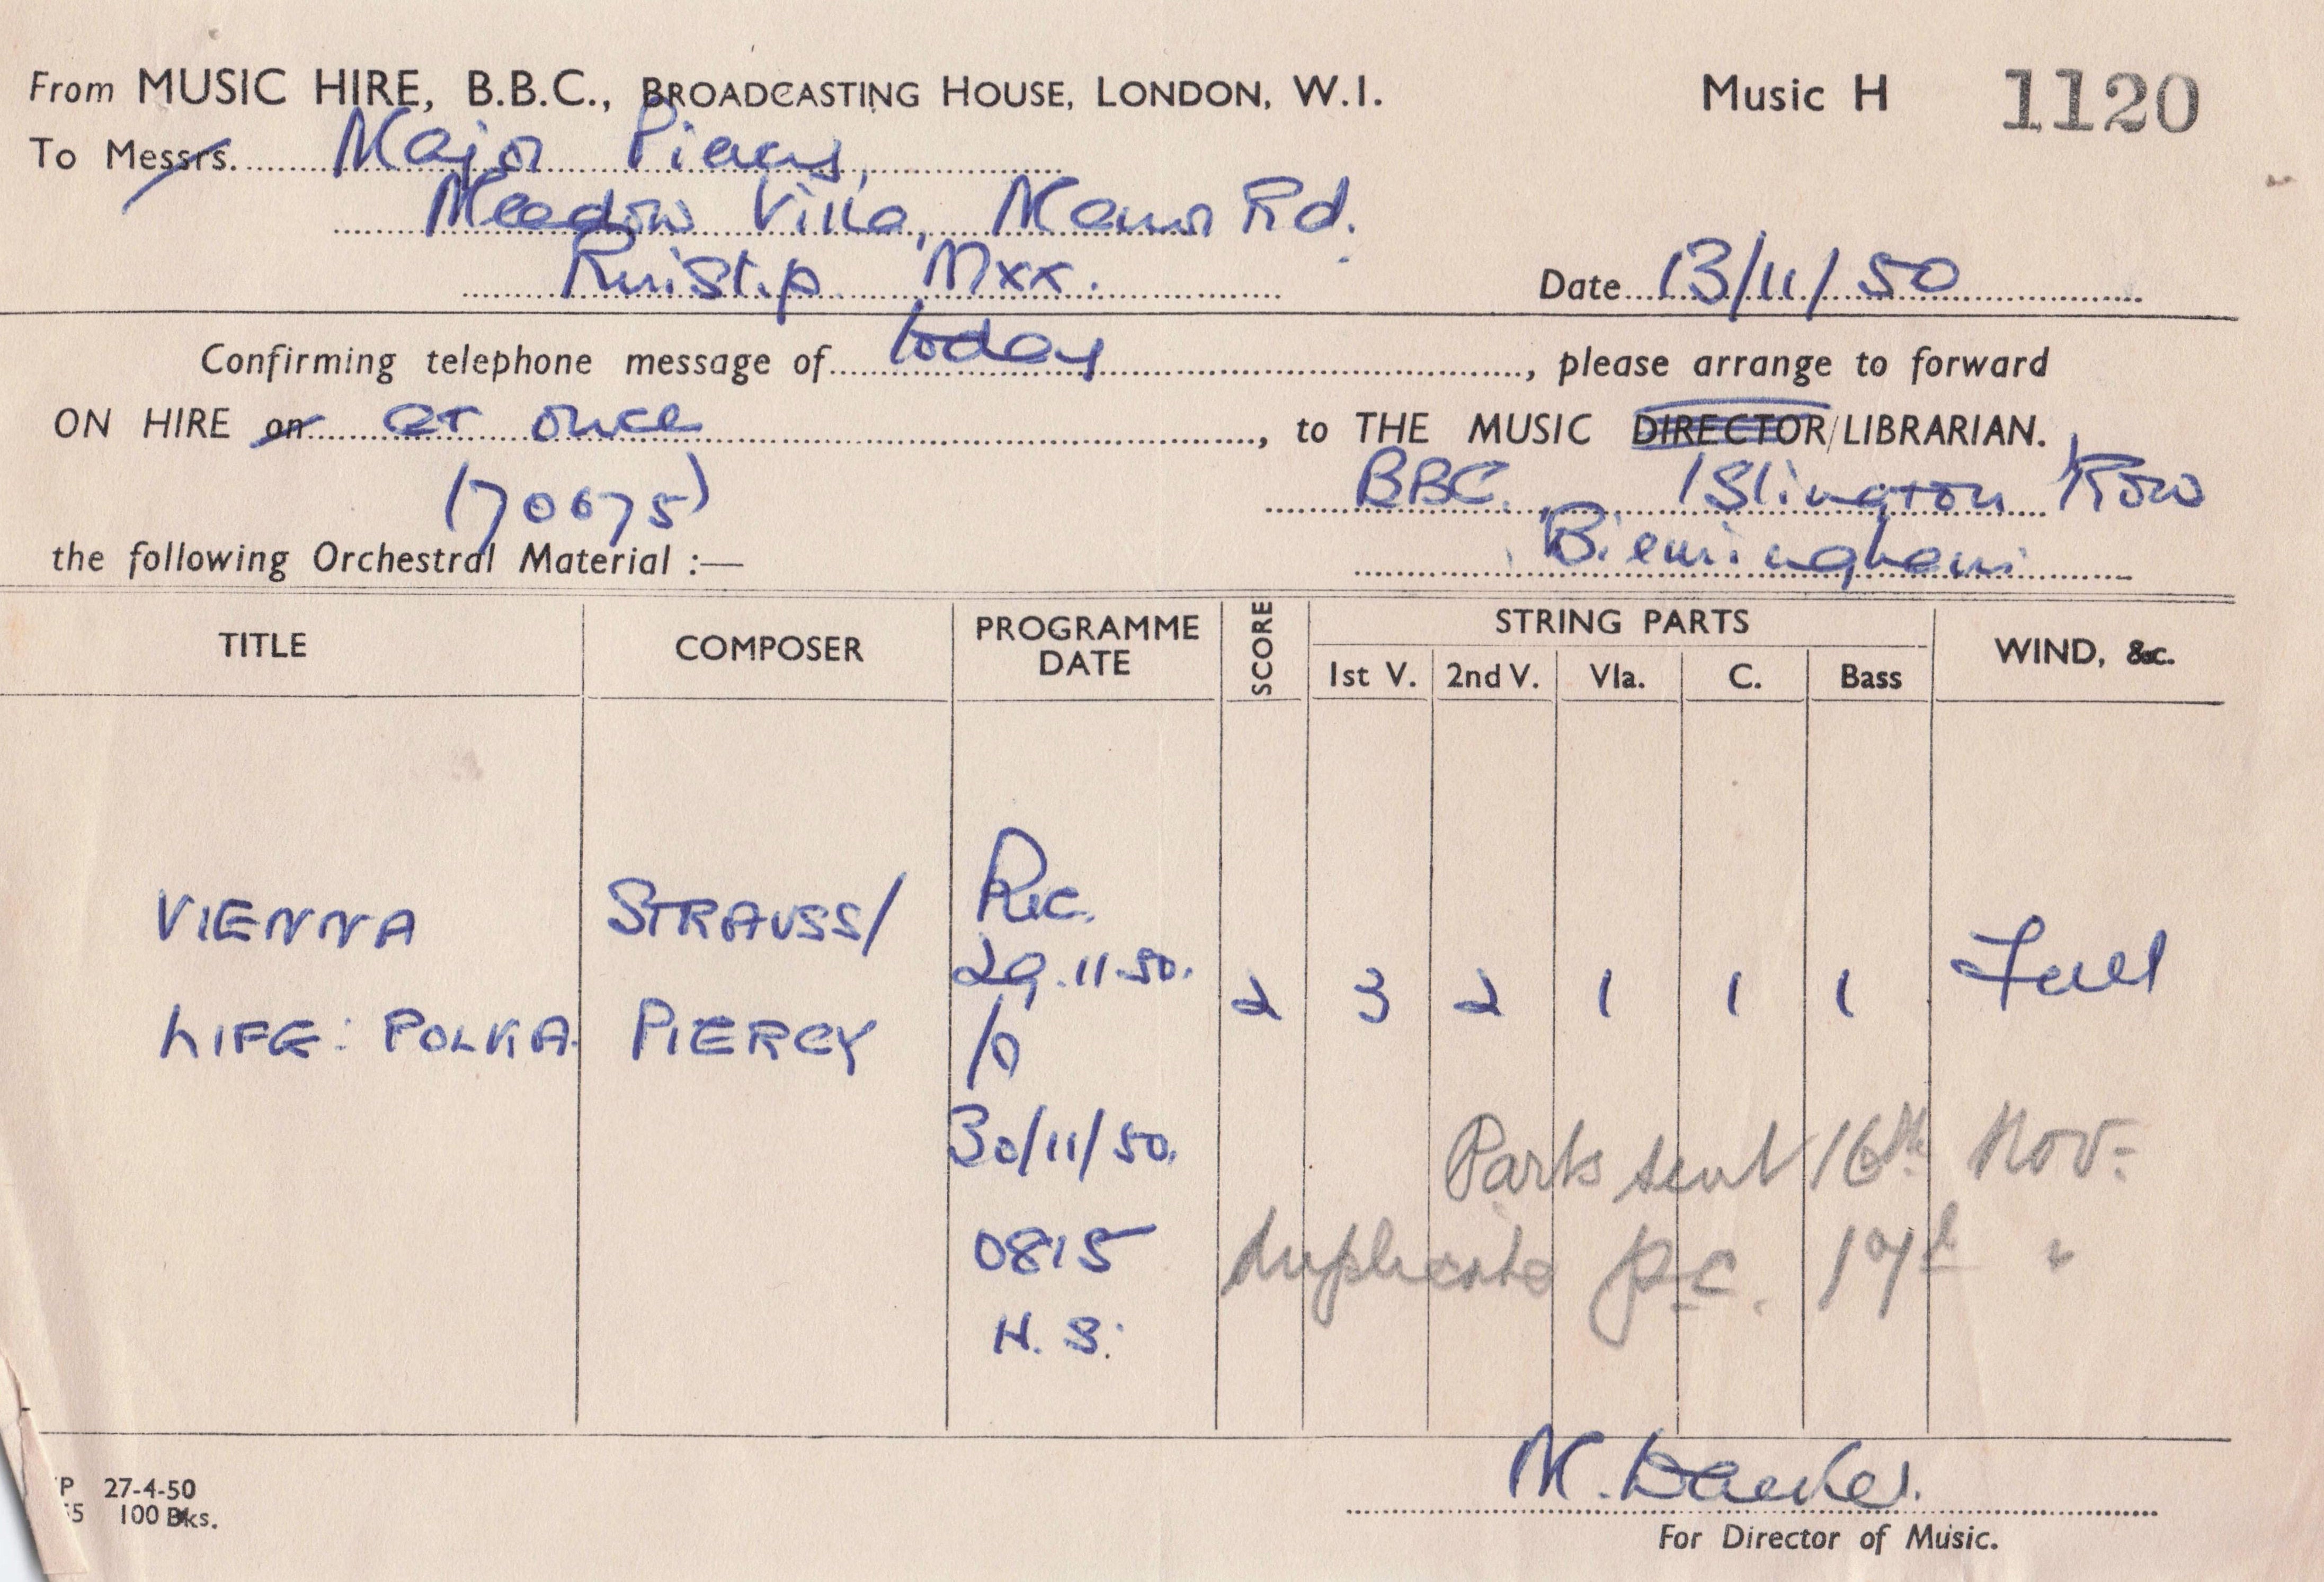 From MUSIC HIRE, B.B.C., BROADCASTING HOUSE, LONDON, W.I. Music H 1120
To Messrs. Major Piercy,
Meadow Villa, Manor Rd.
Ruislip Mxx. Date 13/11/50
Confirming telephone message of today, please arrange to forward
ON HIRE on at once, to THE MUSIC DIRECTOR/LIBRARIAN.
(70675) BBC, Islington Row
Birmingham
the following Orchestral Material :—
TITLE COMPOSER PROGRAMME DATE SCORE STRING PARTS WIND, &c.
1st V. 2nd V. Vla. C. Bass
Rec.
VIENNA STRAUSS/
29.11.50. 2 3 2 1 1 1 Full
LIFE: POLKA PIERCY /o
30/11/50. Parts sent 16th Nov:
0815 duplicate p.c. 17th "
H. S.
P 27-4-50
100 Bks.
For Director of Music.